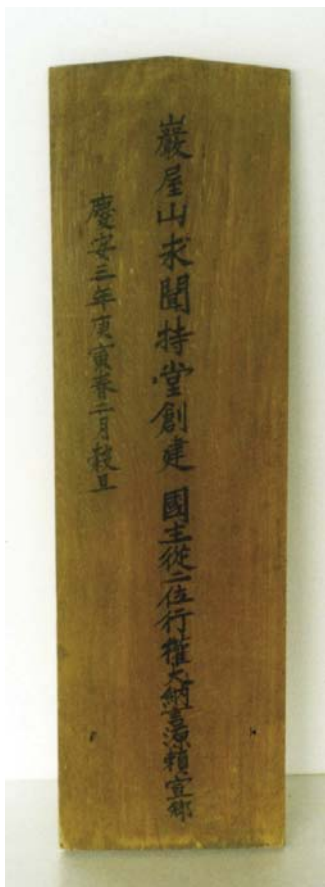 巖屋山求聞持堂創建 國主從二位行權大納言源頼宣卿
慶安三年庚寅春二月穀旦